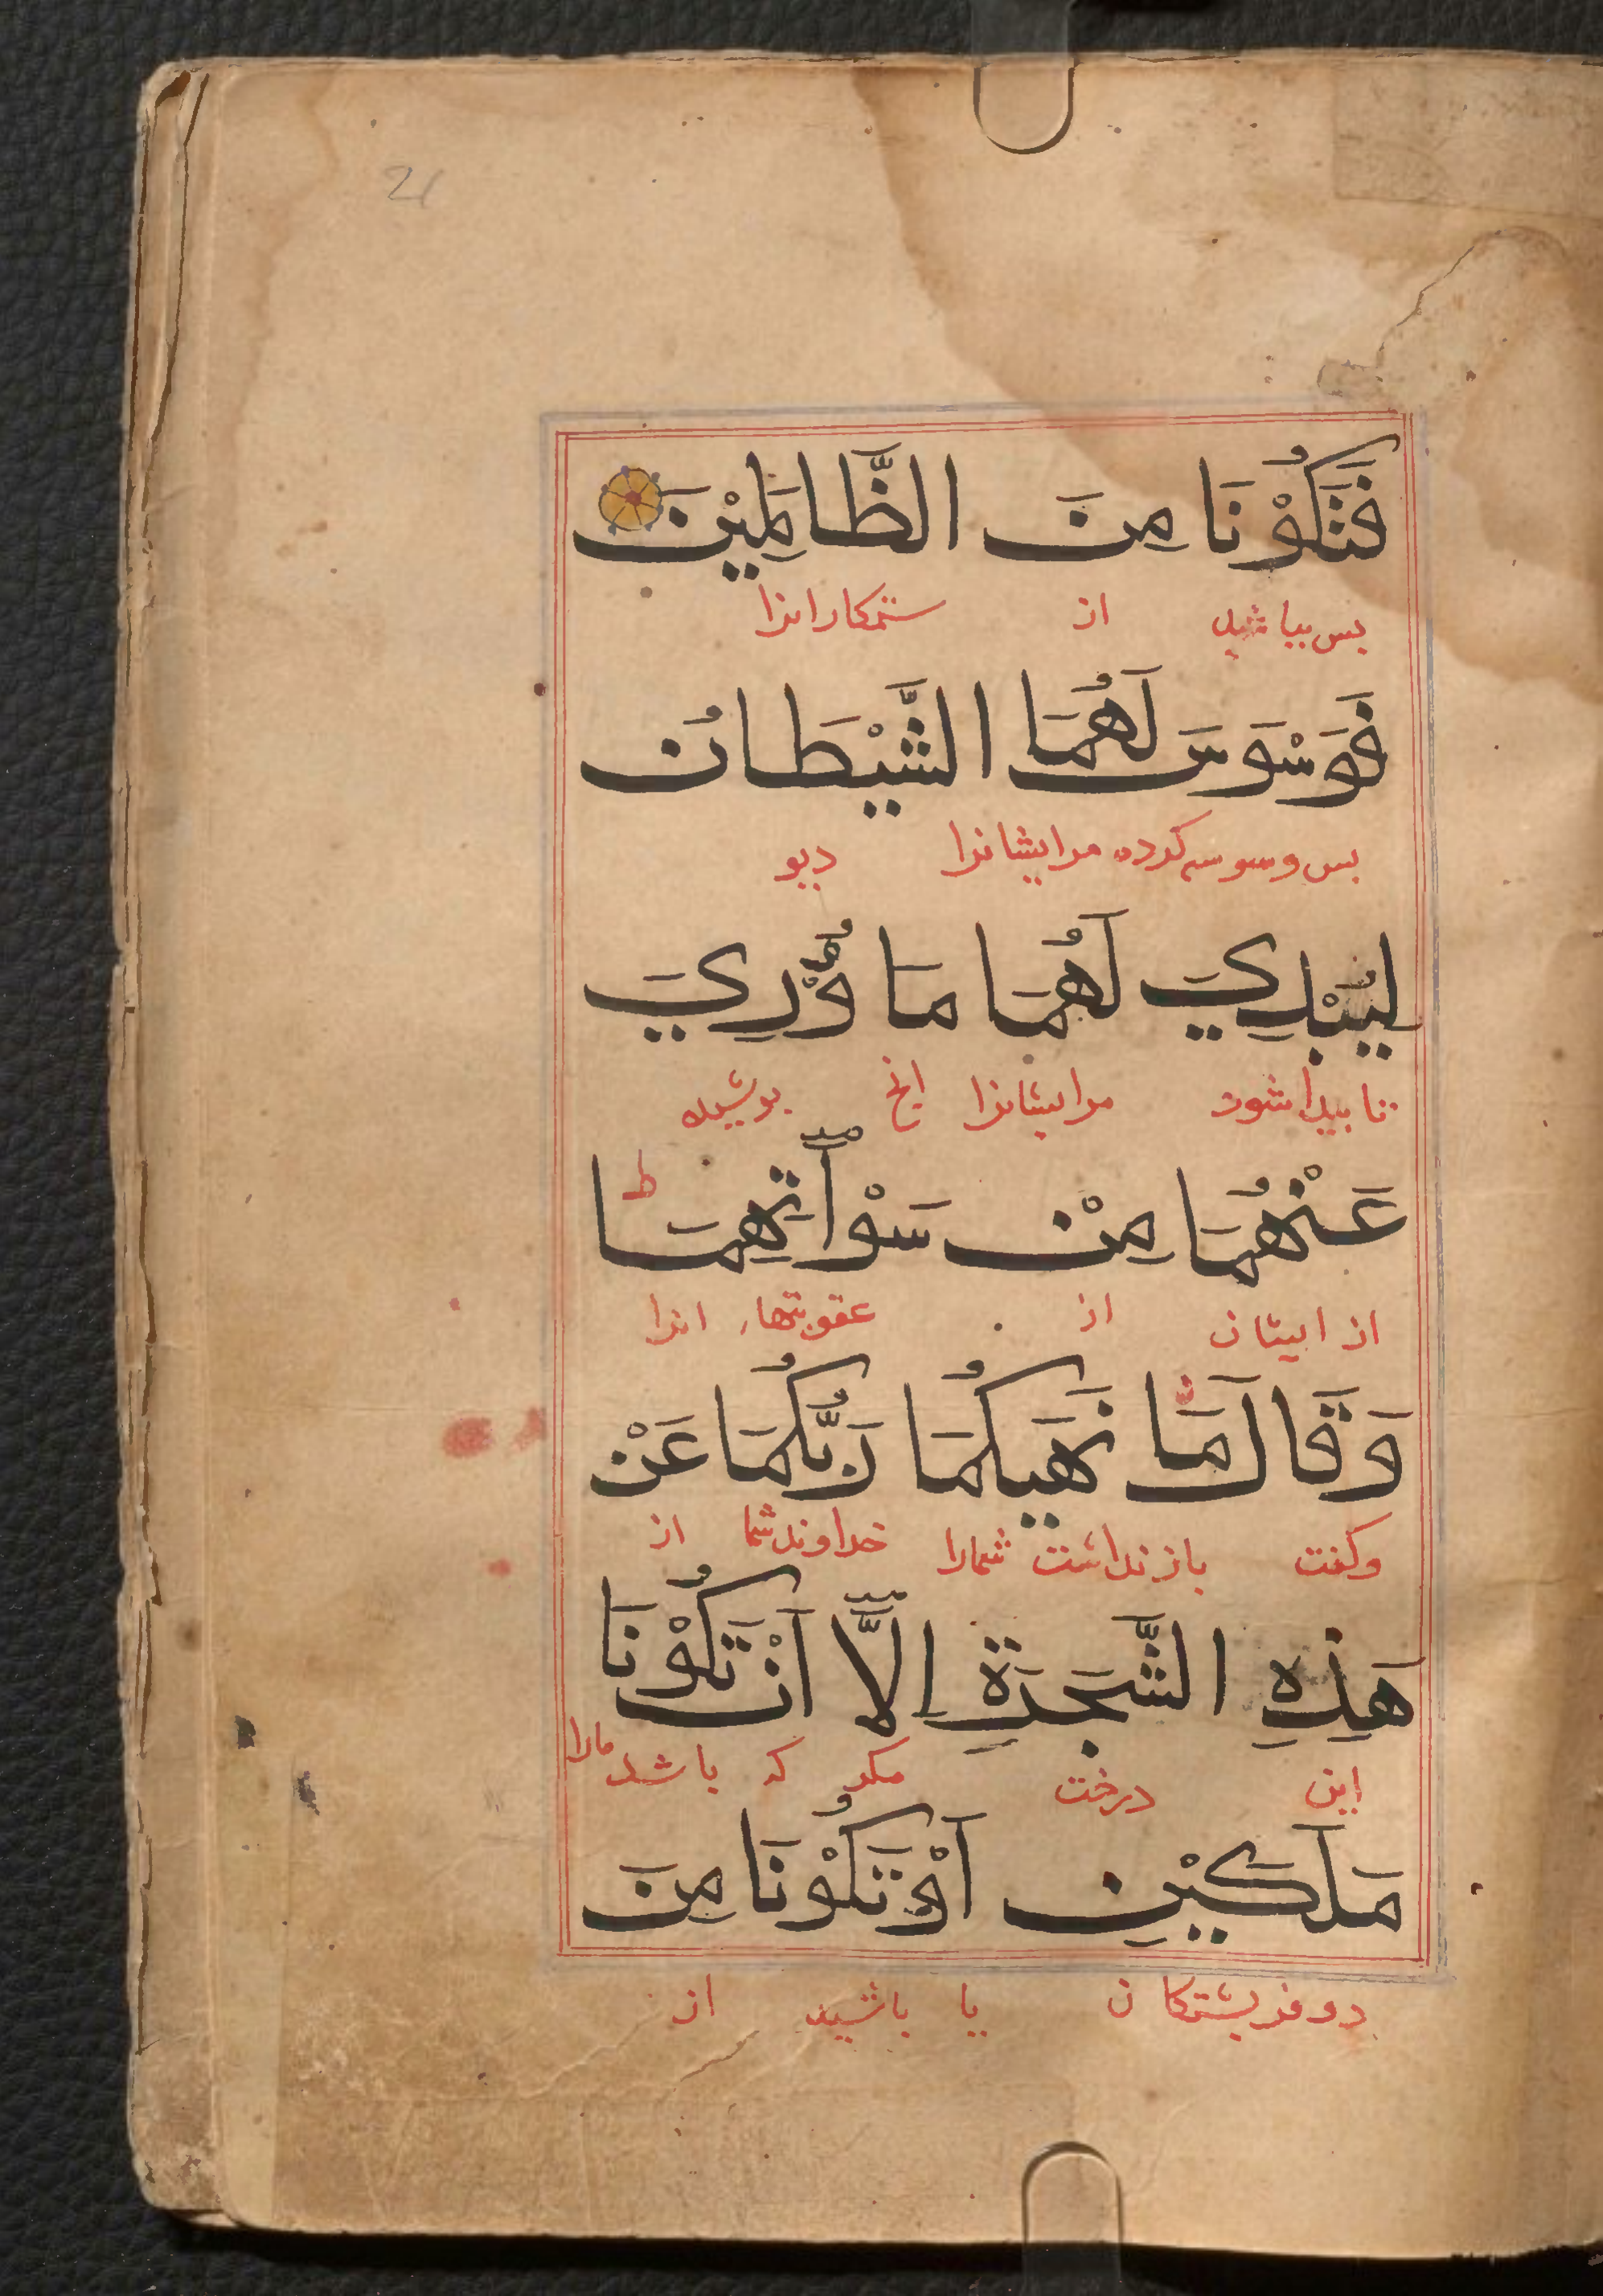 21
فَتَكُوْنَا مِنَ الظَّالِمِيْنَ
بس بباشید از ستمکارانرا
فَوَسْوَسَ لَهُمَا الشَّيْطَانُ
بس وسوسه کرده مرایشانرا دیو
لِيُبْدِيَ لَهُمَا مَا وُرِيَ
تا بیدا شود مرایشانرا انچ بوشیده
عَنْهُمَا مِنْ سَوْآتِهِمَا ط
از ایشان از عقوبتهاء انرا
وَقَالَ مَا نَهَيكُمَا رَبُّكُمَا عَنْ
وکفت باز نداشت شمارا خداوند شما از
هَذِهِ الشَّجَرَةِ اِلَّا اَنْ تَكُوْنَا
این درخت مکر که باشد مارا
مَلَكَيْنِ اَوْ تَكُوْنَا مِنَ
دو فریشتکان یا باشید از